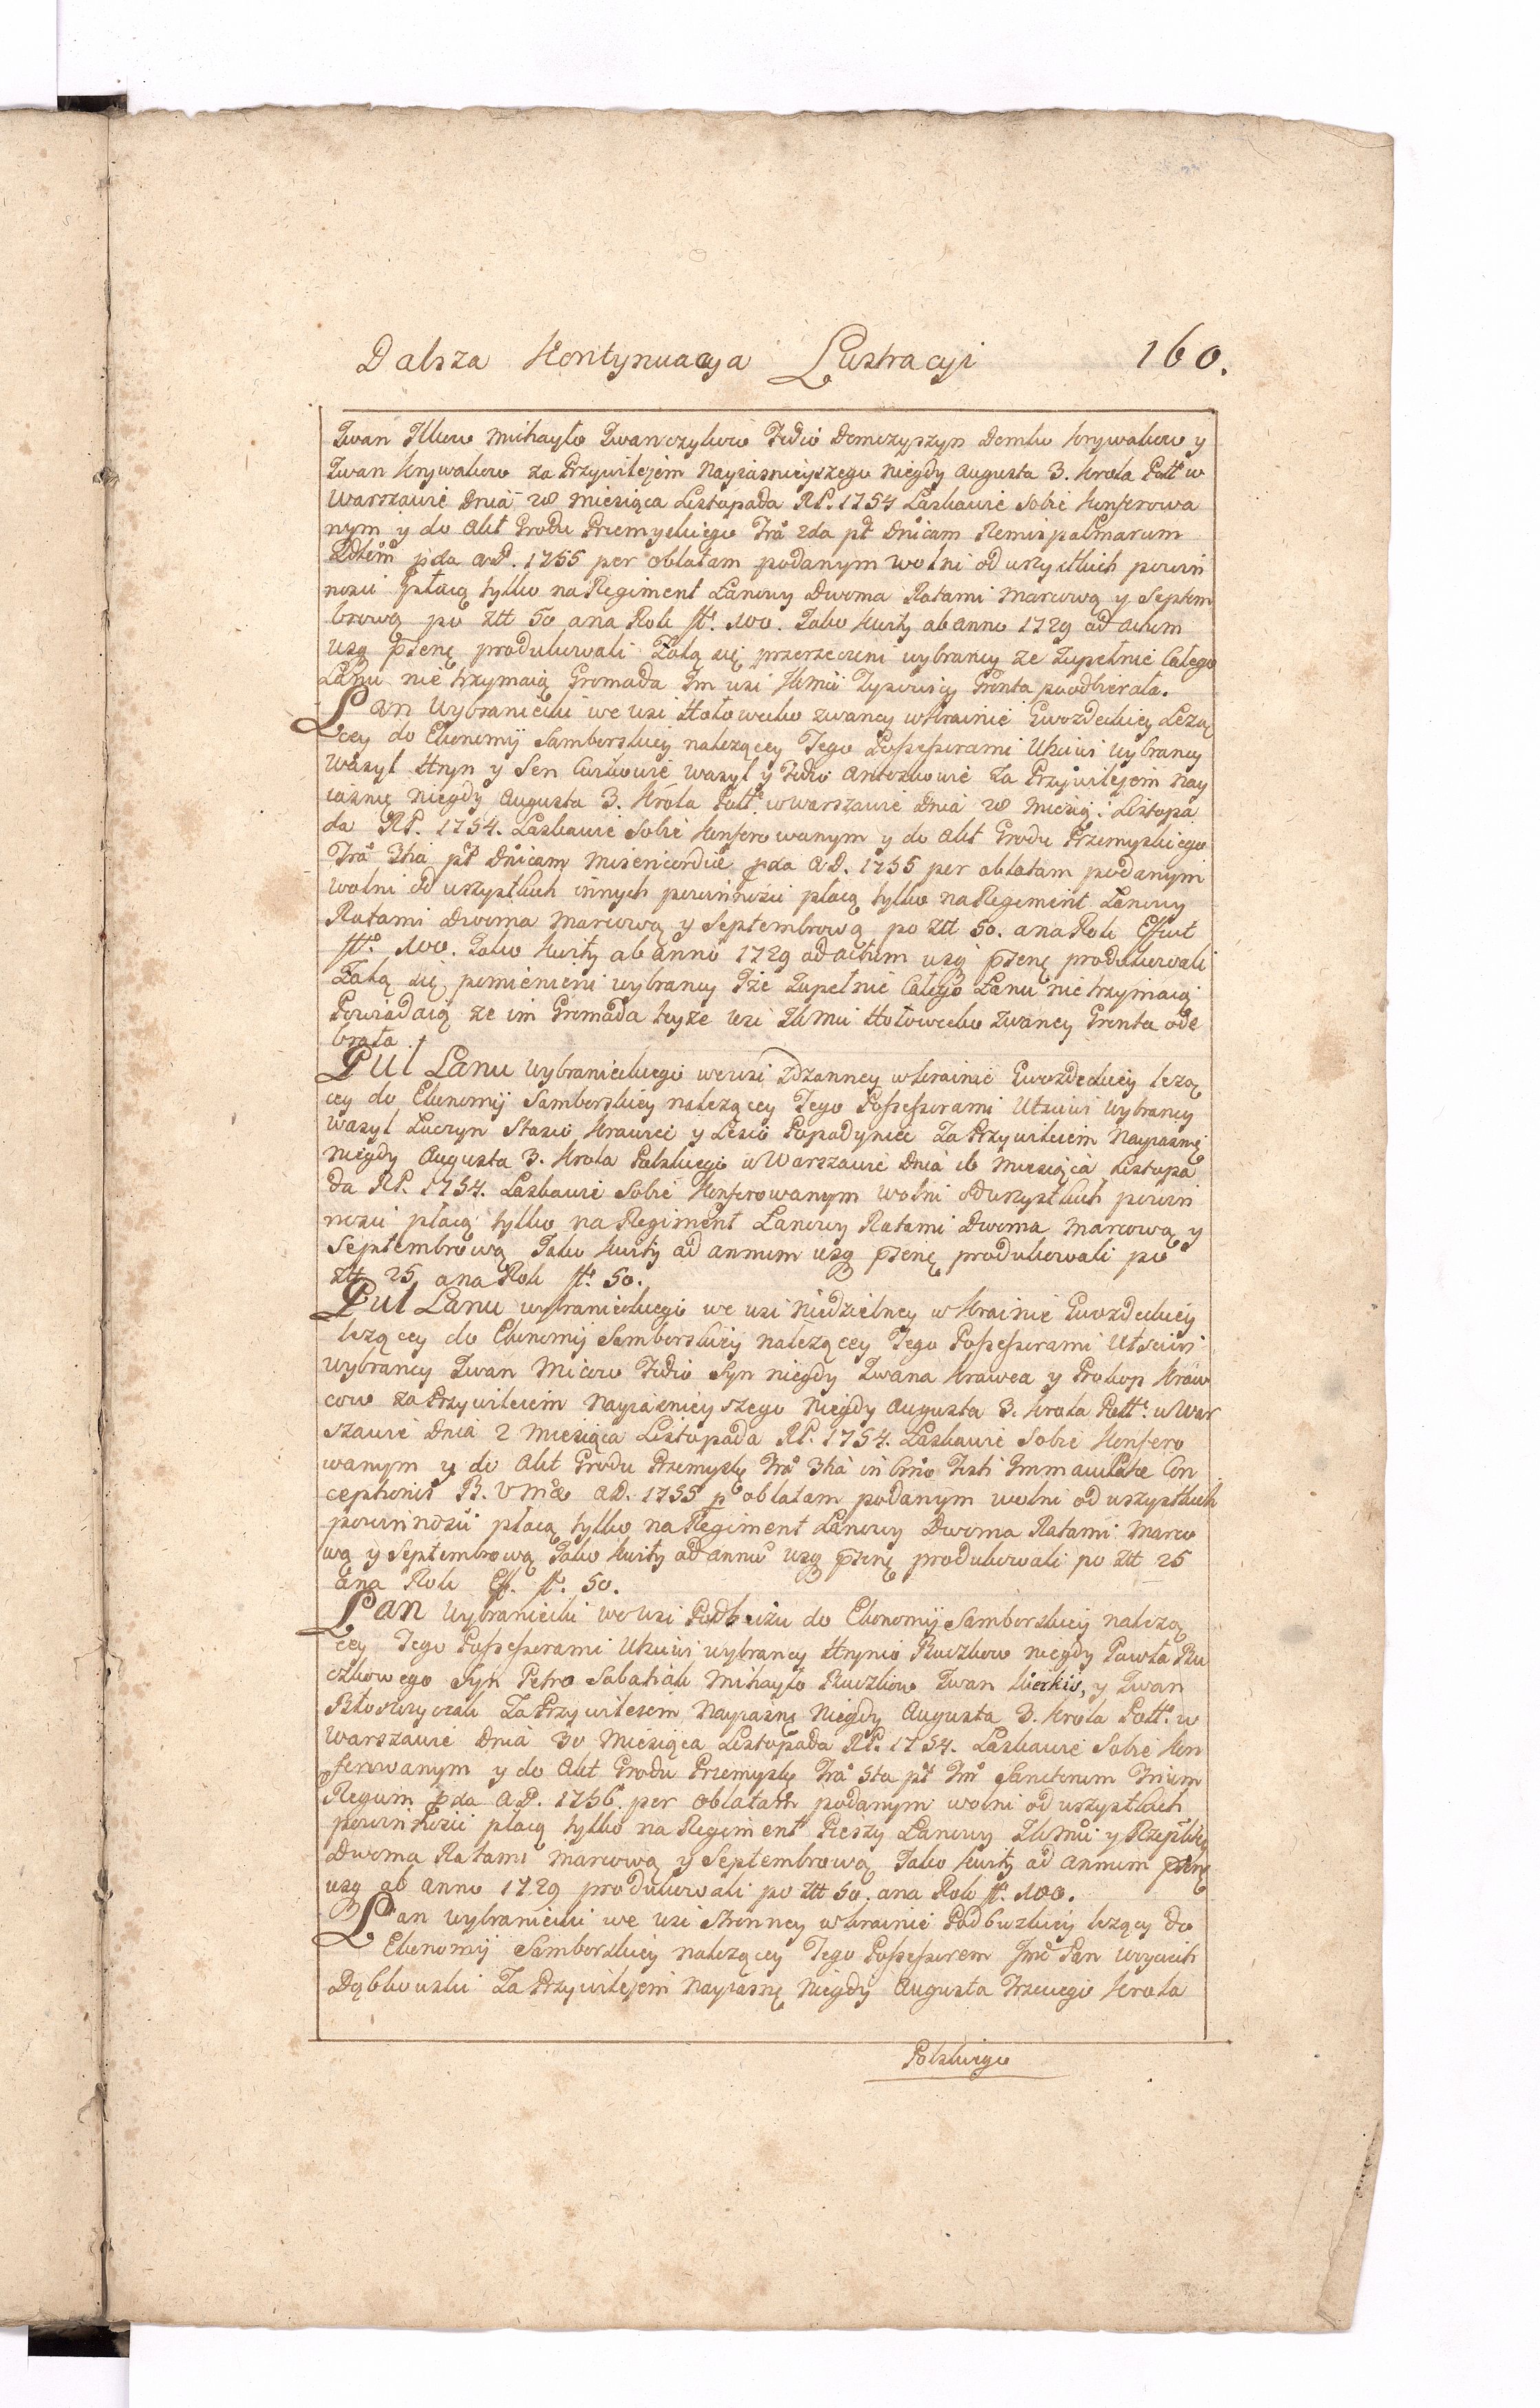 Dalsza Kontynuacya Lustracyi 160.
Iwan Ilkow Mihayło Iwanczykow Fedio Demczyszyn Demko Krywakow y
Iwan Krywakow za Przywilejem Nayiasnieyszego niegdy Augusta 3. Krola Poll: w
Warszawie Dnia 28 Miesiąca Listopada RP. 1754 Laskawie Sobie Konferowa
nym y do Akt Grodu Przemyskiego Fra 2da pt Dnicam Remis palmarum
pda a.D. 1755 per oblatam podanym wolni od wszystkich powin
nosci płacą tylko na Regiment Lanowy Dwoma Ratami Marcową y Septem
brową po Ztt 50 a na Rok ft. 100. Jako kwity ab anno 1729 ad actum
usq prenę produkowali Zalą się przerzeczeni wybrancy ze zupełnie Całego
Lanu nie trzymaią Gromada Im wsi Gronta poodbierała.
Łan Wybraniecki we wsi Hołowecko zwaney w Krainie Gwozdeckiey Lezą
cey do Ekonomij Samborskiey nalezącey Tego Possessorami Utsciwi wybrancy
Wasyl Hryn y Sen Wasyl y Fedio Za Przywilejem Nay
iasnię niegdy Augusta 3. Króla Poll: w Warszawie Dnia 28 Miesią: Listopa
da RP. 1754. Laskawie Sobie Konferowanym y do Akt Grodu Przemyskiego
Fra 3tia pt Dnicam Misericordiæ pda a.D. 1755 per oblatam podanym
wolni od wszystkich innych powinnosci płacą tylko na Regiment Lanowy
Ratami Dwoma Marcową y Septembrową po Ztt 50. a na Rok Efficit
ft. 100. Jako kwity ab anno 1729 ad actum usq prenę produkowali
Zalą się pomienieni wybrancy Iże Zupełnie Całego Lanu nie trzymaią
Powiadaią ze im Gromada teyze wsi Hołowecko zwaney Gronta ode
brała.
Puł Lanu Wybranieckiego we wsi Zdzanney w Krainie Gwozdeckiey lezą
cey do Ekonomij Samborskiey nalezącey Tego Possessorami Utsciwi Wybrancy
Wasyl Łuczyn Stasio Krawiec y Lesio Popadyniec Za Przywileiem Nayiasnię
niegdy Augusta 3. Krola Polskiego w Warszawie Dnia 16 Miesiąca Listopa
da RP. 1754. Laskawie Sobie Konferowanym wolni od wszystkich powin
nosci płacą tylko na Regiment Lanowy Ratami Dwoma Marcową y
Septembrową Jako kwity ad annum usq prenę produkowali po
Ztt 25 a na Rok ft. 50.
Puł Lanu wybranieckiego we wsi Niedzielney w Krainie Gwozdeckiey
lezącey do Ekonomij Samborskiey nalezącey Tego Possessorami Utsciwi
wybrancy Iwan Micow Fedio Syn niegdy Iwana Krawca y Prokop Kraw
cow za Przywileiem Nayiasnieyszego Niegdy Augusta 3. Krola Poll: w War
szawie Dnia 2 Miesiąca Listopada RP. 1754. Laskawie Sobie Konfero
wanym y do Akt Grodu Przemyslę Fra 3tia in Crno Festi Immaculatæ Con
ceptionis B. V Mæ a.D. 1755 p oblatam podanym wolni od wszystkich
powinnosci płacą tylko na Regiment Lanowy Dwoma Ratami Marco
wą y Septembrową Jako kwity ad annu usq prenę produkowali po Ztt 25
a na Rok Eff. ft. 50.
Łan Wybraniecki we wsi Podbużu do Ekonomij Samborskiey nalezą
cey Tego Possessorami Utsciwi wybrancy Hrynio Ruczkow niegdy Pawła Ru
czkowego Syn Petro Sabatiak Mihayło Ruczkow Iwan Kierkis, y Iwan
Za Przywilejem Nayiasnię Niegdy Augusta 3. Krola Poll: w
Warszawie Dnia 30 Miesiąca Listopada RP. 1754. Laskawie Sobie Kon
ferowanym y do Akt Grodu Przemyslę Fra 5ta pt Fm Sanctorum Trium
Regum pda a.D. 1756 per oblatam podanym wolni od wszystkich
powinnosci płacą tylko na Regiment Pieszy Lanowy y Rzepltey
Dwoma Ratami Marcową y Septembrową Jako kwity ad annum prenę
usq ab anno 1729 produkowali po Ztt 50. a na Rok ft. 100.
Łan wybraniecki we wsi Stronney w Krainie Podbuzkiey lezący do
Ekonomij Samborskiey nalezącey Tego Possessorem Jmć Pan Woyciech
Dąbkowski Za Przywilejem Nayiasnię Niegdy Augusta Trzeciego Krola
Polskiego